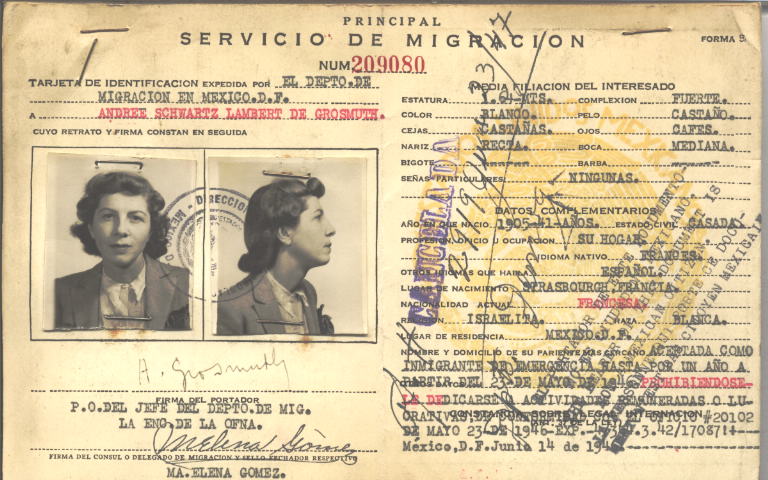 PRINCIPAL
SERVICIO DE MIGRACION
FORMA
NUM. 209080
TARJETA DE IDENTIFICACION EXPEDIDA POR EL DEPTO. DE
MIGRACION EN MEXICO.D.F.
A ANDREE SCHWARTZ LAMBERT DE GROSMUTH.
CUYO RETRATO Y FIRMA CONSTAN EN SEGUIDA
DIRECCION
A. Grosmuth
FIRMA DEL PORTADOR
P.O.DEL JEFE DEL DEPTO.DE MIG.
LA ENC.DE LA OFNA.
FIRMA DEL CONSUL O DELEGADO DE MIGRACION Y SELLO FECHADOR RESPECTIVO
MA.ELENA GOMEZ.
MEDIA FILIACION DEL INTERESADO
ESTATURA 1.64-MTS. COMPLEXION FUERTE.
COLOR BLANCO. PELO CASTAÑO.
CEJAS CASTAÑAS. OJOS CAFES.
NARIZ RECTA. BOCA MEDIANA.
BIGOTE BARBA
SEÑAS PARTICULARES NINGUNAS.
DATOS COMPLEMENTARIOS
AÑO EN QUE NACIO 1905-41-AÑOS. ESTADO CIVIL CASADA.
PROFESION, OFICIO U OCUPACION SU HOGAR.
IDIOMA NATIVO FRANCES.
OTROS IDIOMAS QUE HABLA ESPAÑOL.
LUGAR DE NACIMIENTO STRASBOURGH, FRANCIA.
NACIONALIDAD ACTUAL FRANCESA.
RELIGION ISRAELITA. RAZA BLANCA.
LUGAR DE RESIDENCIA MEXICO.D.F.
NOMBRE Y DOMICILIO DE SU PARIENTE MAS CERCANO ACEPTADA COMO
INMIGRANTE DE EMERGENCIA HASTA POR UN AÑO A
PARTIR DEL 23-DE MAYO DE 1946 PROHIBIENDOSE-
LE DEDICARSE A ACTIVIDADES REMUNERADAS O LU-
CRATIVAS #20102
CONSTANCIA SOBRE LEGAL INTERNACION
DE MAYO 23-DE 1946-EXP- 3.42/17087
México,D.F.Junio 14 de 194
CANCELADA